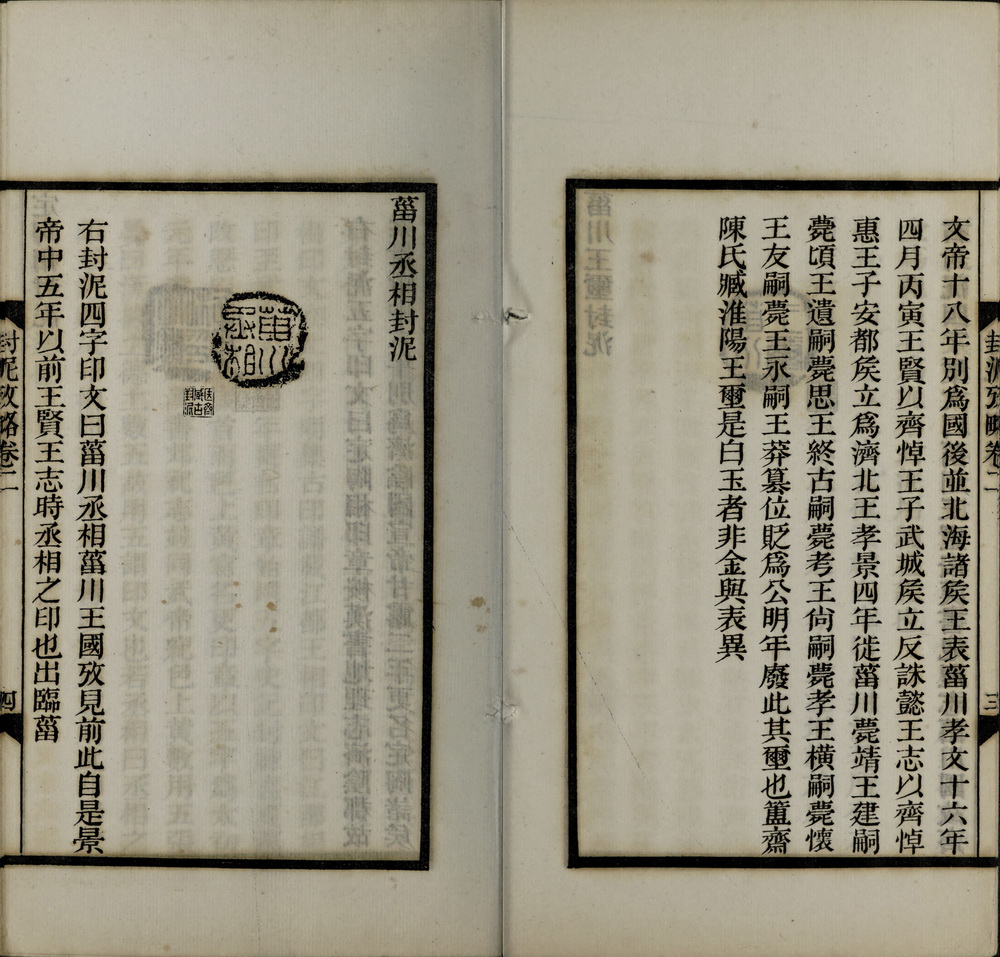 文帝十八年別爲國後並北海諸矦王表菑川孝文十六年
四月丙寅王賢以齊悼王子武城矦立反誅懿王志以齊悼
惠王子安都矦立爲濟北王孝景四年徙菑川薨靖王建嗣
薨頃王遺嗣薨思王終古嗣薨考王尙嗣薨孝王橫嗣薨懷
王友嗣薨王永嗣王莽篡位貶爲公明年廢此其璽也簠齋
陳氏臧淮陽王璽是白玉者非金與表異
封泥攷略卷二
三
菑川丞相封泥
菑川丞相
右封泥四字印文曰菑川丞相菑川王國攷見前此自是景
帝中五年以前王賢王志時丞相之印也出臨菑
封泥攷略卷二
四